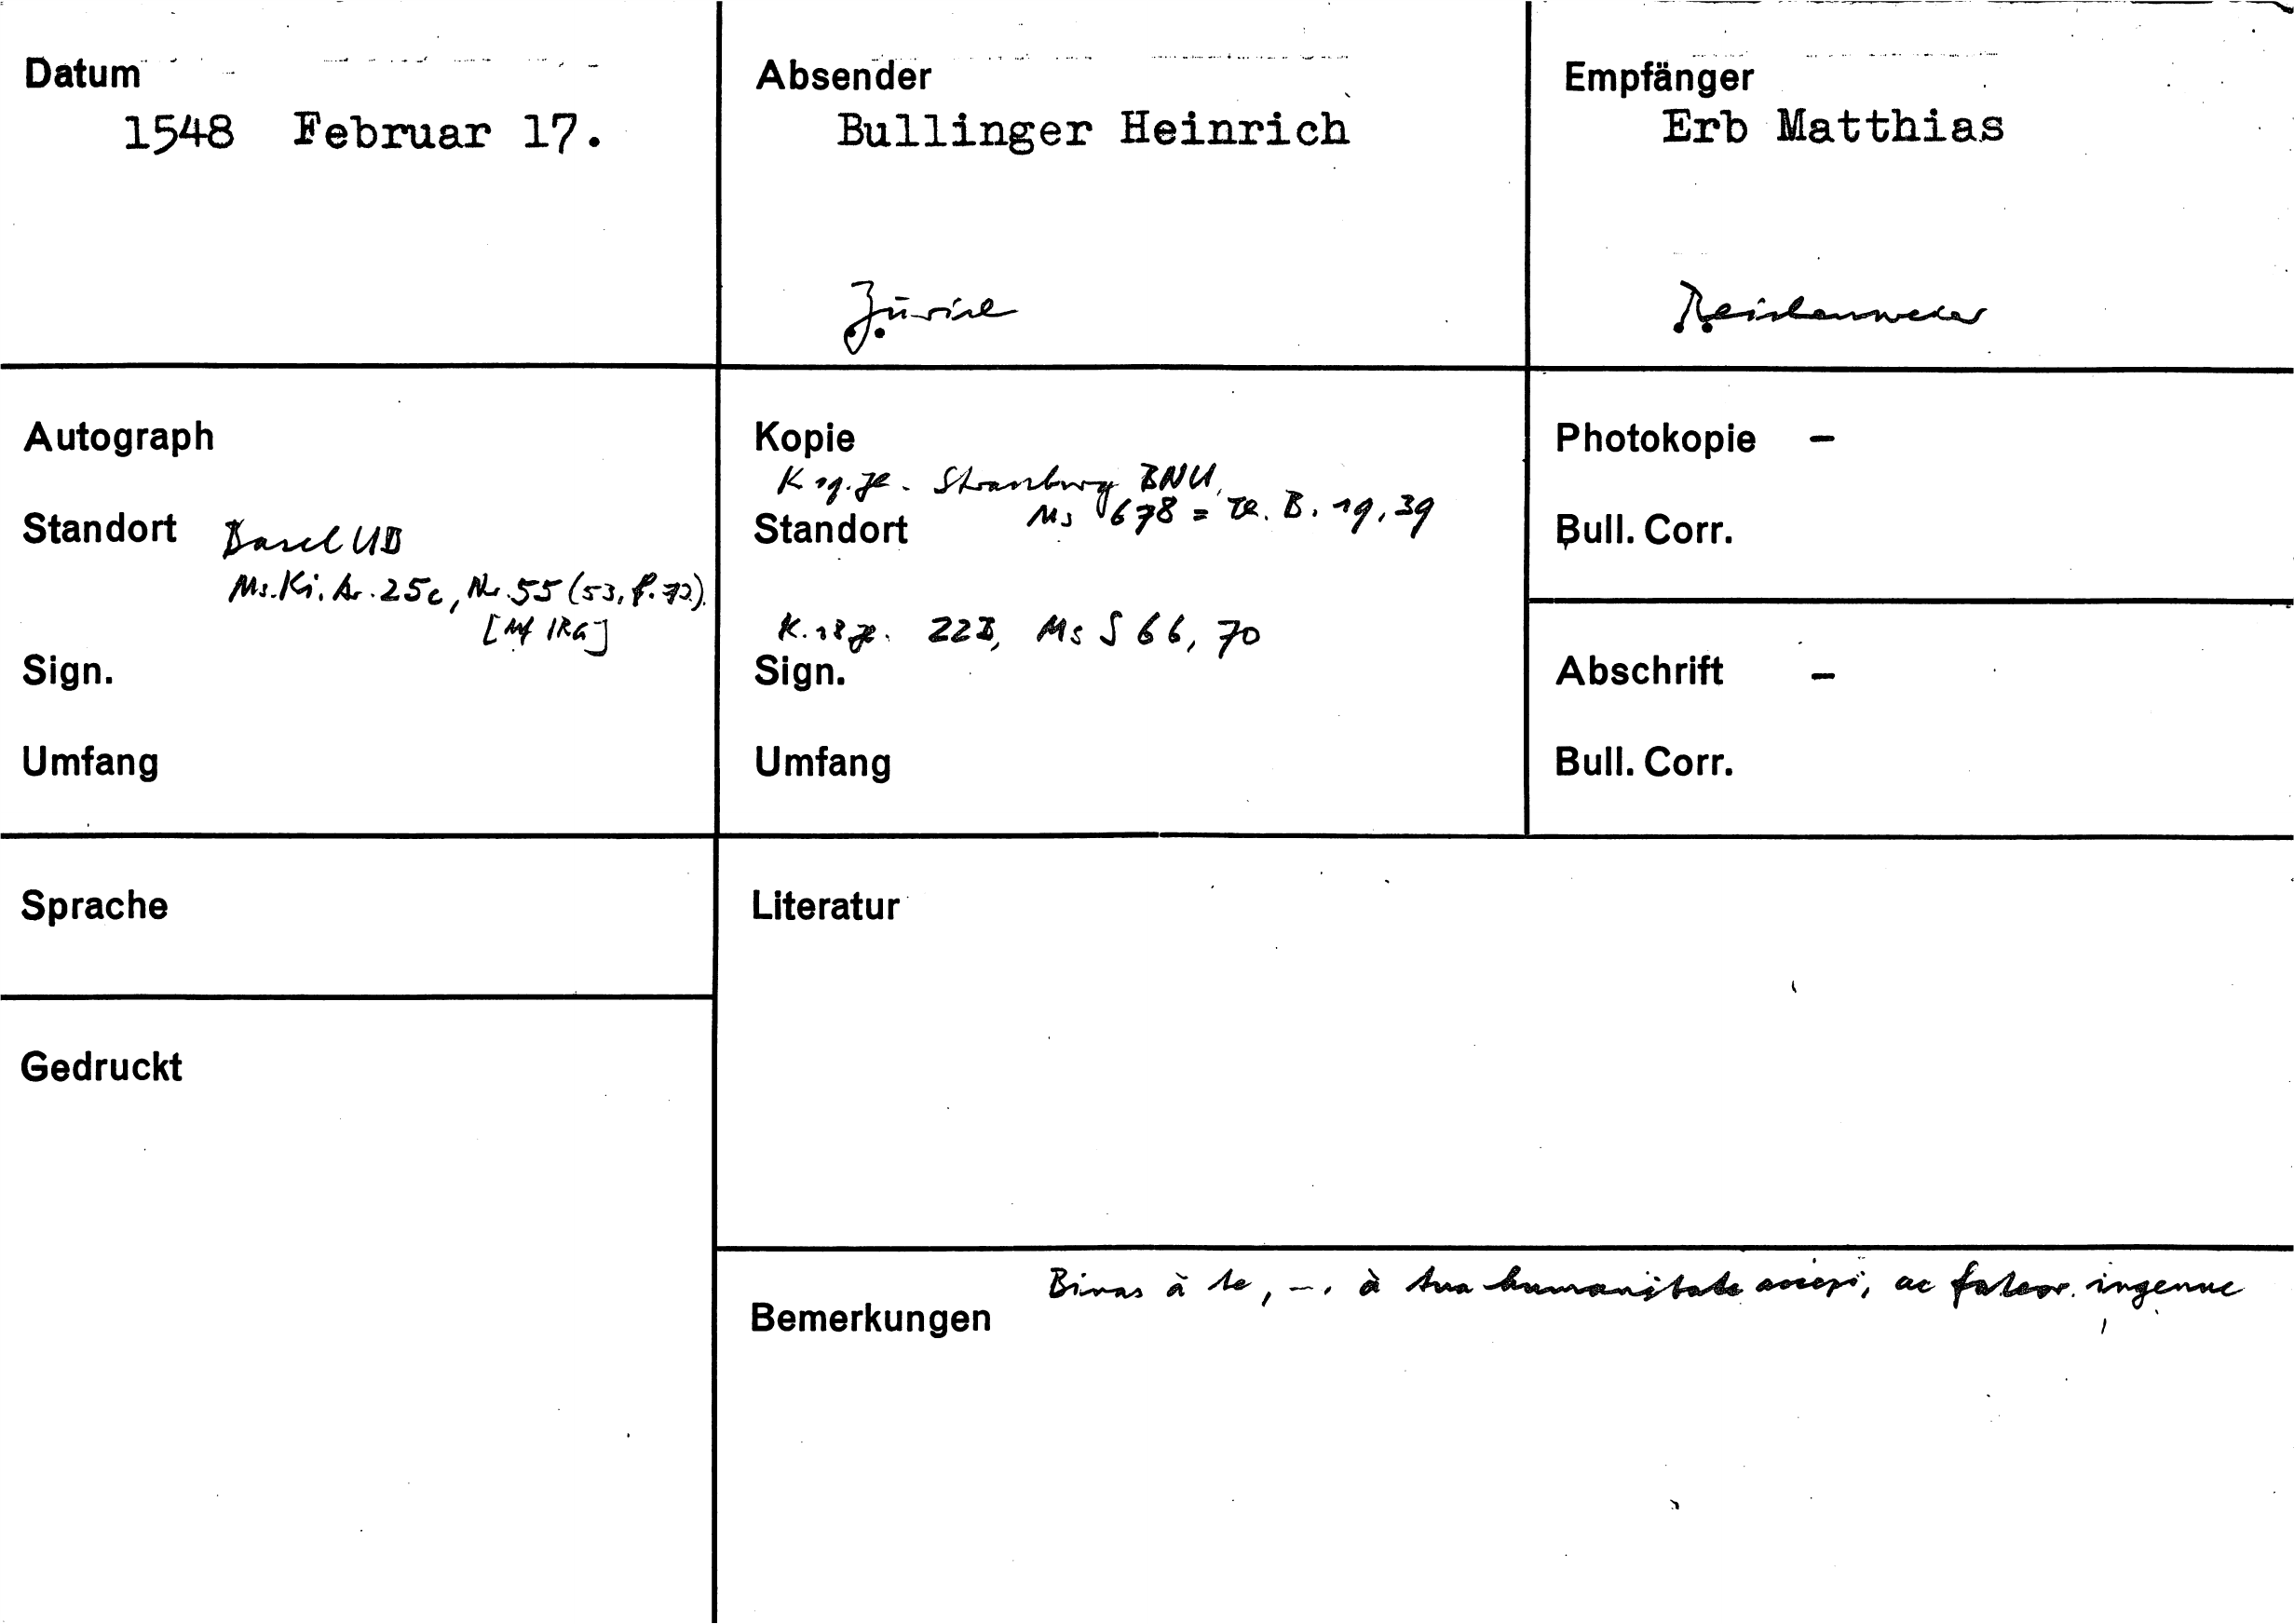 Datum
1548 Februar 17.
Absender
Bullinger Heinrich
Zürich
Empfänger
Erb Matthias
Reichenweier
Autograph
Standort Basel UB
Ms. Ki. Ar. 25c, Nr. 55 (53, f. 72).
[Mf IRG]
Sign.
Umfang
Kopie
K 19. Je. Strassburg BNU,
Standort Ms 678 = Th. B. 19, 39
K. 18 Je. ZZB, Ms S 66, 70
Sign.
Umfang
Photokopie –
Bull. Corr.
Abschrift –
Bull. Corr.
Sprache
Gedruckt
Literatur
Binas à te, –. à tua humanitate accepi, ac fateor ingenue
Bemerkungen